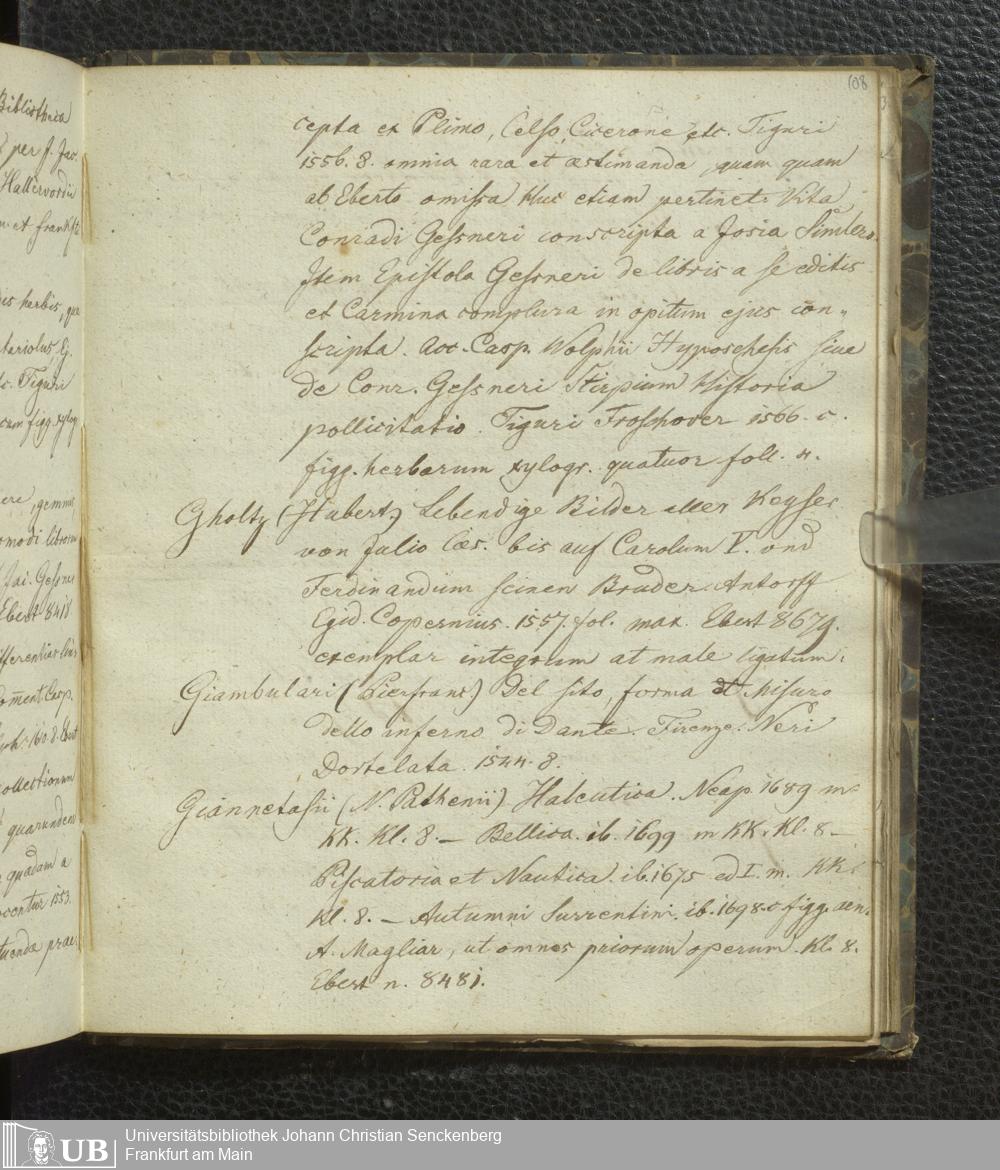 108
cepta ex Plinio, Celso, Cicerone etc. Tiguri
1556. 8. omnia rara et æstimanda quam quam
ab Eberto omissa Huc etiam pertinet. Vita
Conradi Gessneri conscripta a Josia Simlero.
Item Epistola Gessneri de libris a se editis
et Carmina complura in opitum ejus con„
scripta. Acc. Casp. Wolphii Hyposchesis sive
de Conr. Gessneri Stirpium Historia
pollicitatio. Tiguri Froschover 1566. c.
figg. herbarum xylogr. quatuor foll. 4.
Gholtz (Hubert.) Lebendige Bilder aller Keyser
von Julio Cæs. bis auf Carolum V. und
Ferdinandum seinen Bruder. Antorff
Egid. Copernius. 1557. fol. max. Ebert 8679.
exemplar integrum at male ligatum.
Giambulari (Pierfranc.) Del sito, forma et Misuro
dello inferno di Dante. Firenze. Neri
Dortelata. 1544. 8.
Giannetasii (N. Pathenii) Haleutica. Neap. 1689 m.
KK. Kl. 8. – Bellica. ib. 1699 m KK. Kl. 8 –
Piscatoria et Nautica. ib. 1675 ed I. m. KK.
Kl. 8. – Autumni Surrentini. ib. 1698. c figg. aen.
A. Magliar, ut omnes priorum operum. Kl. 8.
Ebert n. 8481.
Bibliotheca
per J. Jac.
Hallervordii
et Frankf
herbis, quæ
Ej.
Tiguri
cum figg. xylog
gemmis,
modi librorum
Gessner
Ebert 8418
Com̄ent. Casp.
Ebert
collectionum
quarundem
quædam a
1553.
UB
Universitätsbibliothek Johann Christian Senckenberg
Frankfurt am Main